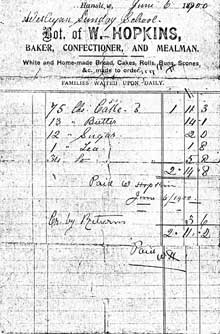 June 6, 1900
Wesleyan Sunday School.
Bot. of W. HOPKINS,
BAKER, CONFECTIONER, AND MEALMAN.
White and Home-made Bread, Cakes, Rolls, Buns, Scones,
&c., made to order.
FAMILIES WAITED UPON DAILY.
75 lbs. Cake 1 11 3
13 " Butter 14 1
12 " Sugar 2 0
1 " Tea 1 8
5 8
2 14 8
Paid W Hopkins
June 6/1900
Cr by Returns 3 6
2 11 2
Paid WH